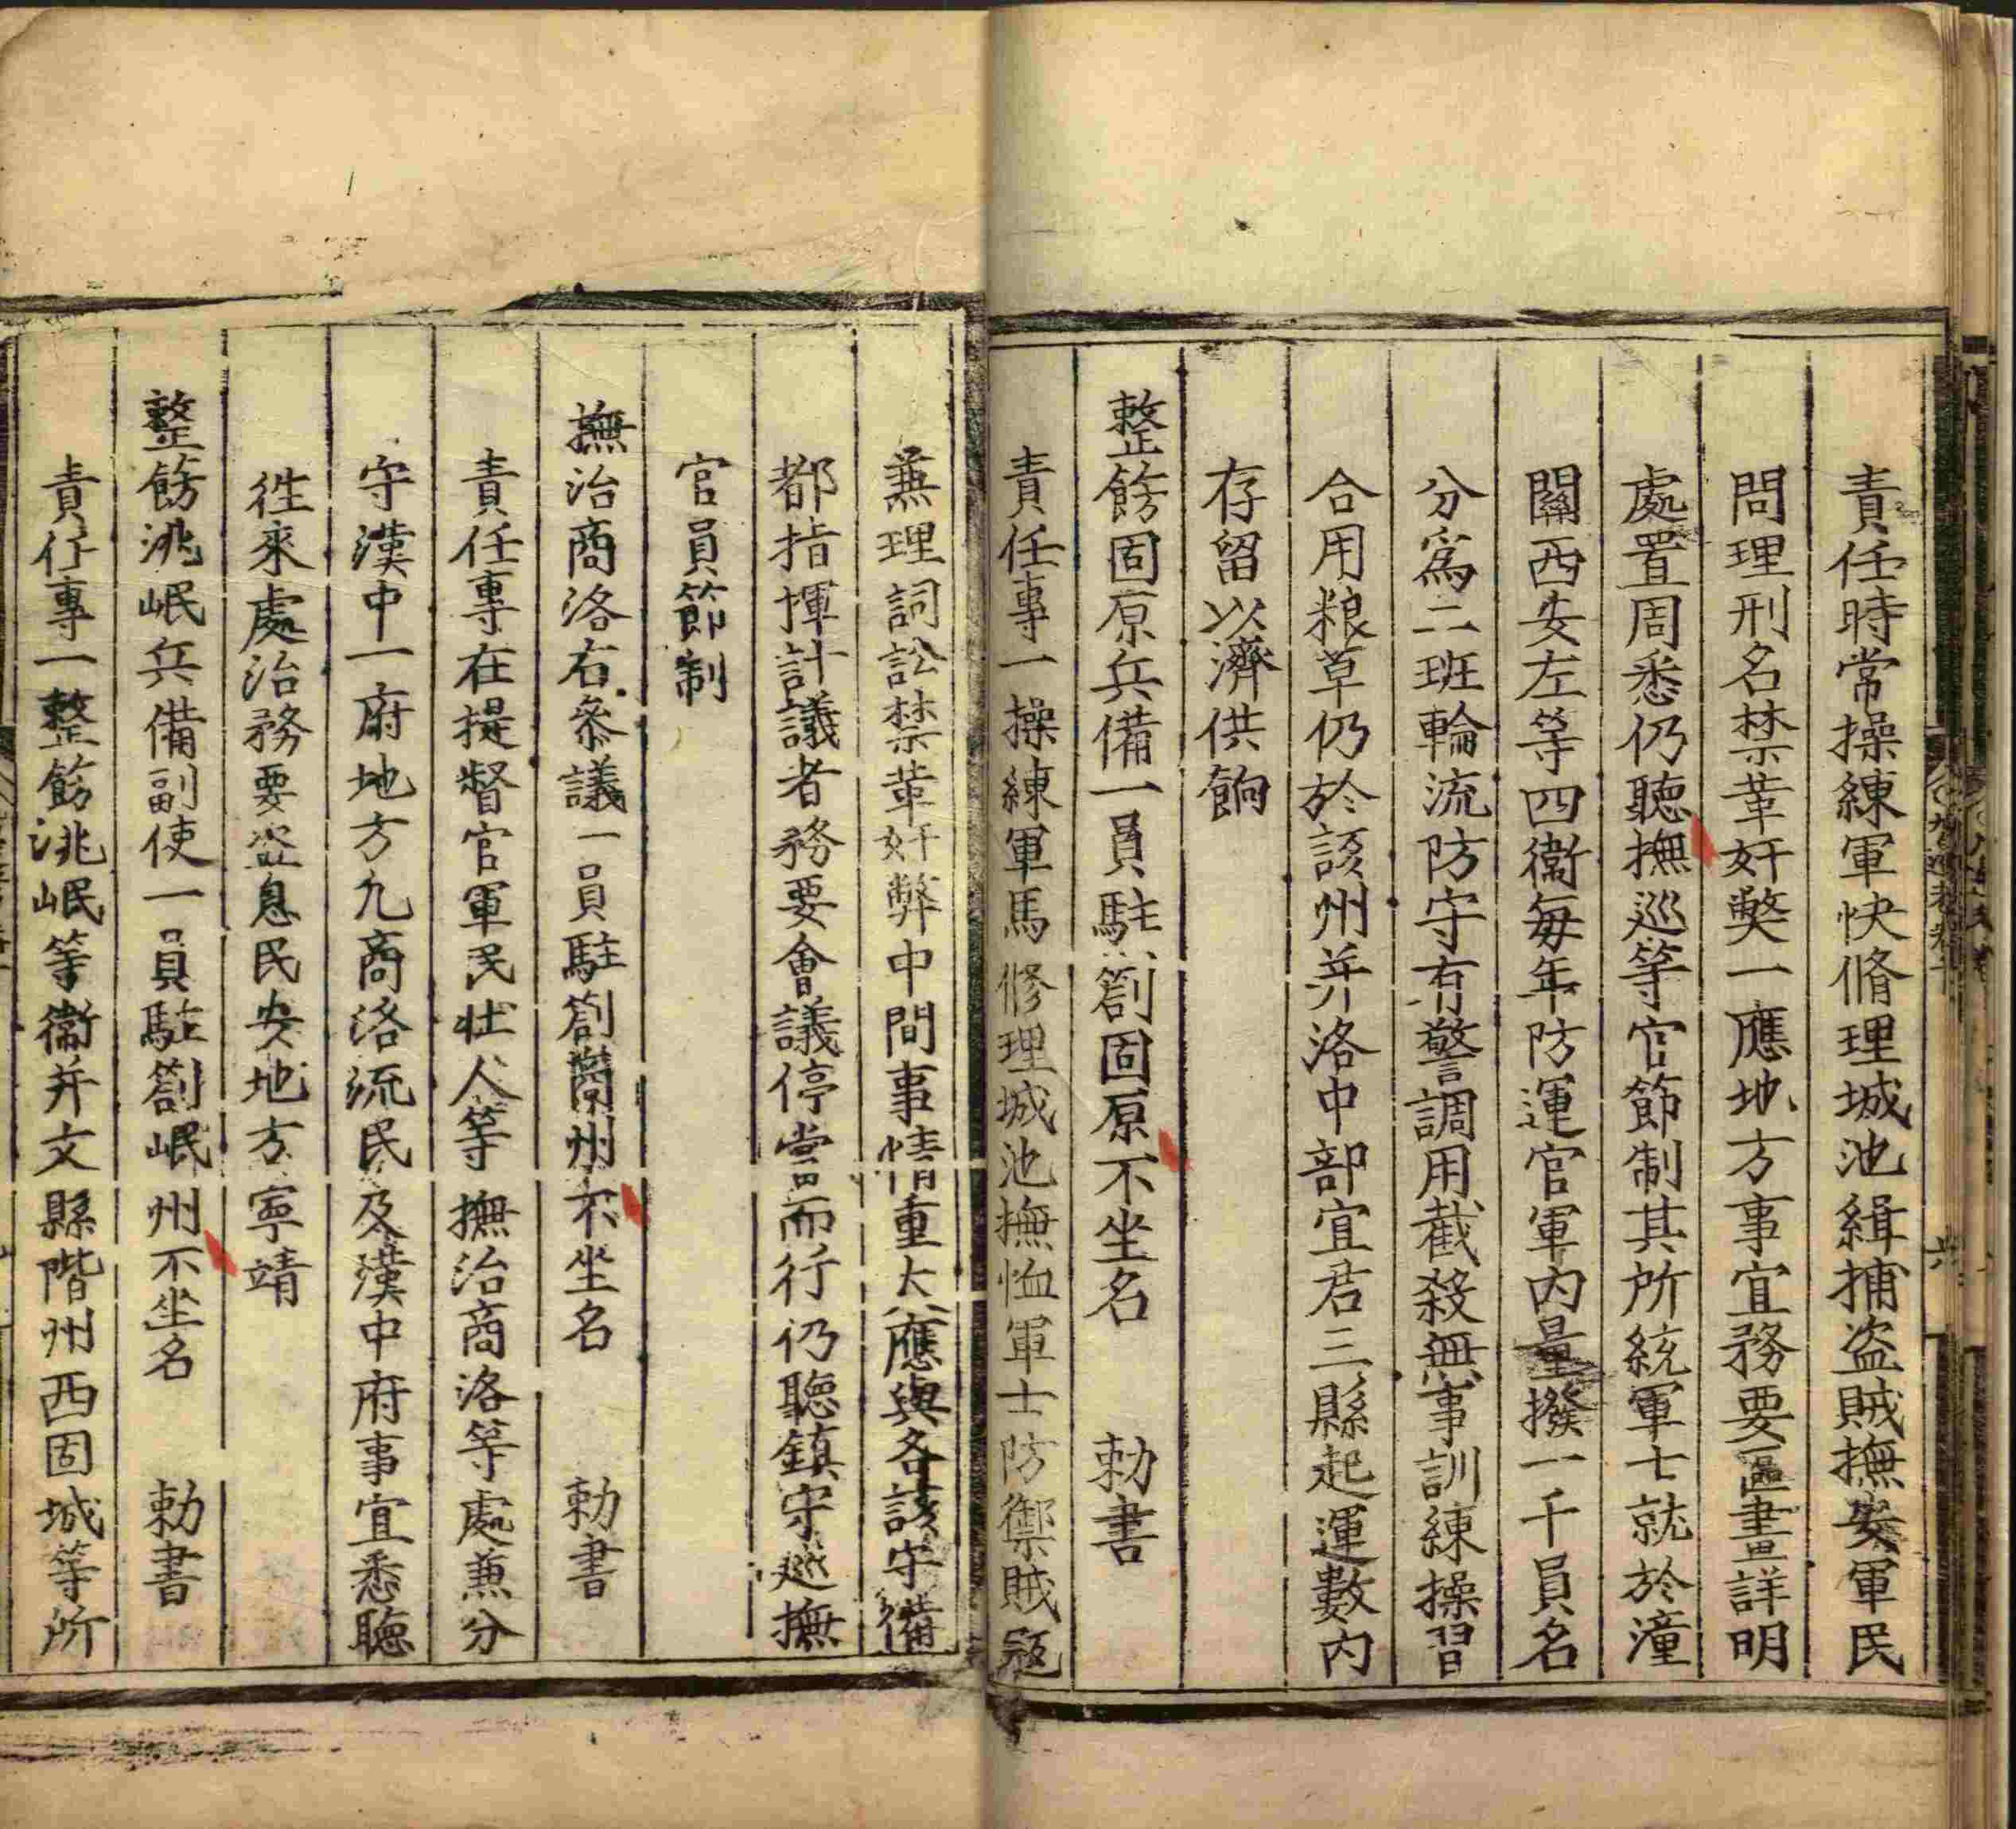 責任時常操練軍快脩理城池緝捕盗賊撫安軍民
問理刑名禁革奸獘一應地方事宜務要區畫詳明
處置周悉仍聽撫巡等官節制其所統軍士就於潼
關西安左等四衞每年防運官軍内量撥一千員名
分爲二班輪流防守有警調用截殺無事訓練操習
合用粮草仍於該州并洛中部宜君三縣起運數内
存留以濟供餉
整飭固原兵備一員駐劄固原不坐名 勅書
責任專一操練軍馬修理城池撫恤軍士防禦賊寇
兼理詞訟禁革奸弊中間事情重大應與各該守備
都指揮計議者務要會議停當而行仍聽鎮守廵撫
官員節制
撫治商洛右叅議一員駐劄商州不坐名 勅書
責任專在提督官軍民壯人等撫治商洛等處兼分
守漢中一府地方凡商洛流民及漢中府事宜悉聽
徃來處治務要盗息民安地方寧靖
整飭洮岷兵備副使一員駐劄岷州不坐名 勅書
責任專一整飭洮岷等衞并文縣階州西固城等所